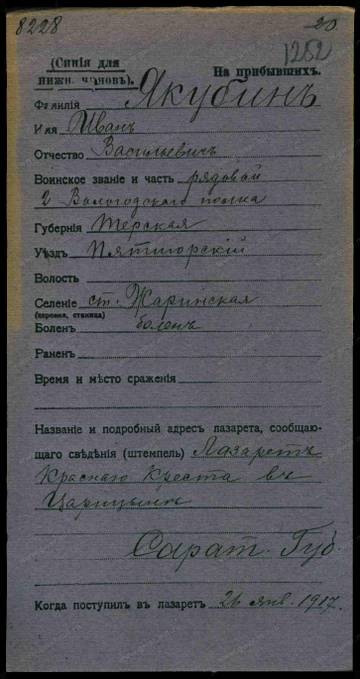 8228
20.
1252
(Синія для
нижн. чиновъ).
На прибывшихъ.
Фамилія Якубинъ
Имя Иванъ
Отчество Васильевичъ
Воинское званіе и часть рядовой
2 Вологодского полка
Губернія Терская
Уѣздъ Пятигорскій
Волость
Селеніе ст. Жаринская
(деревня, станица)
Боленъ боленъ
Раненъ
Время и мѣсто сраженія
Названіе и подробный адресъ лазарета, сообщаю-
щаго свѣдѣнія (штемпель) Лазаретъ
Краснаго Креста въ
Царицынѣ
Сарат. Губ.
Когда поступилъ въ лазаретъ 26 янв. 1917.